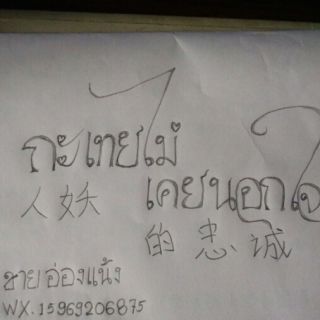 กะเทยไม่
เคยนอกใจ
人妖
的忠诚
ชายอ่องแน้ง
WX.15969206875